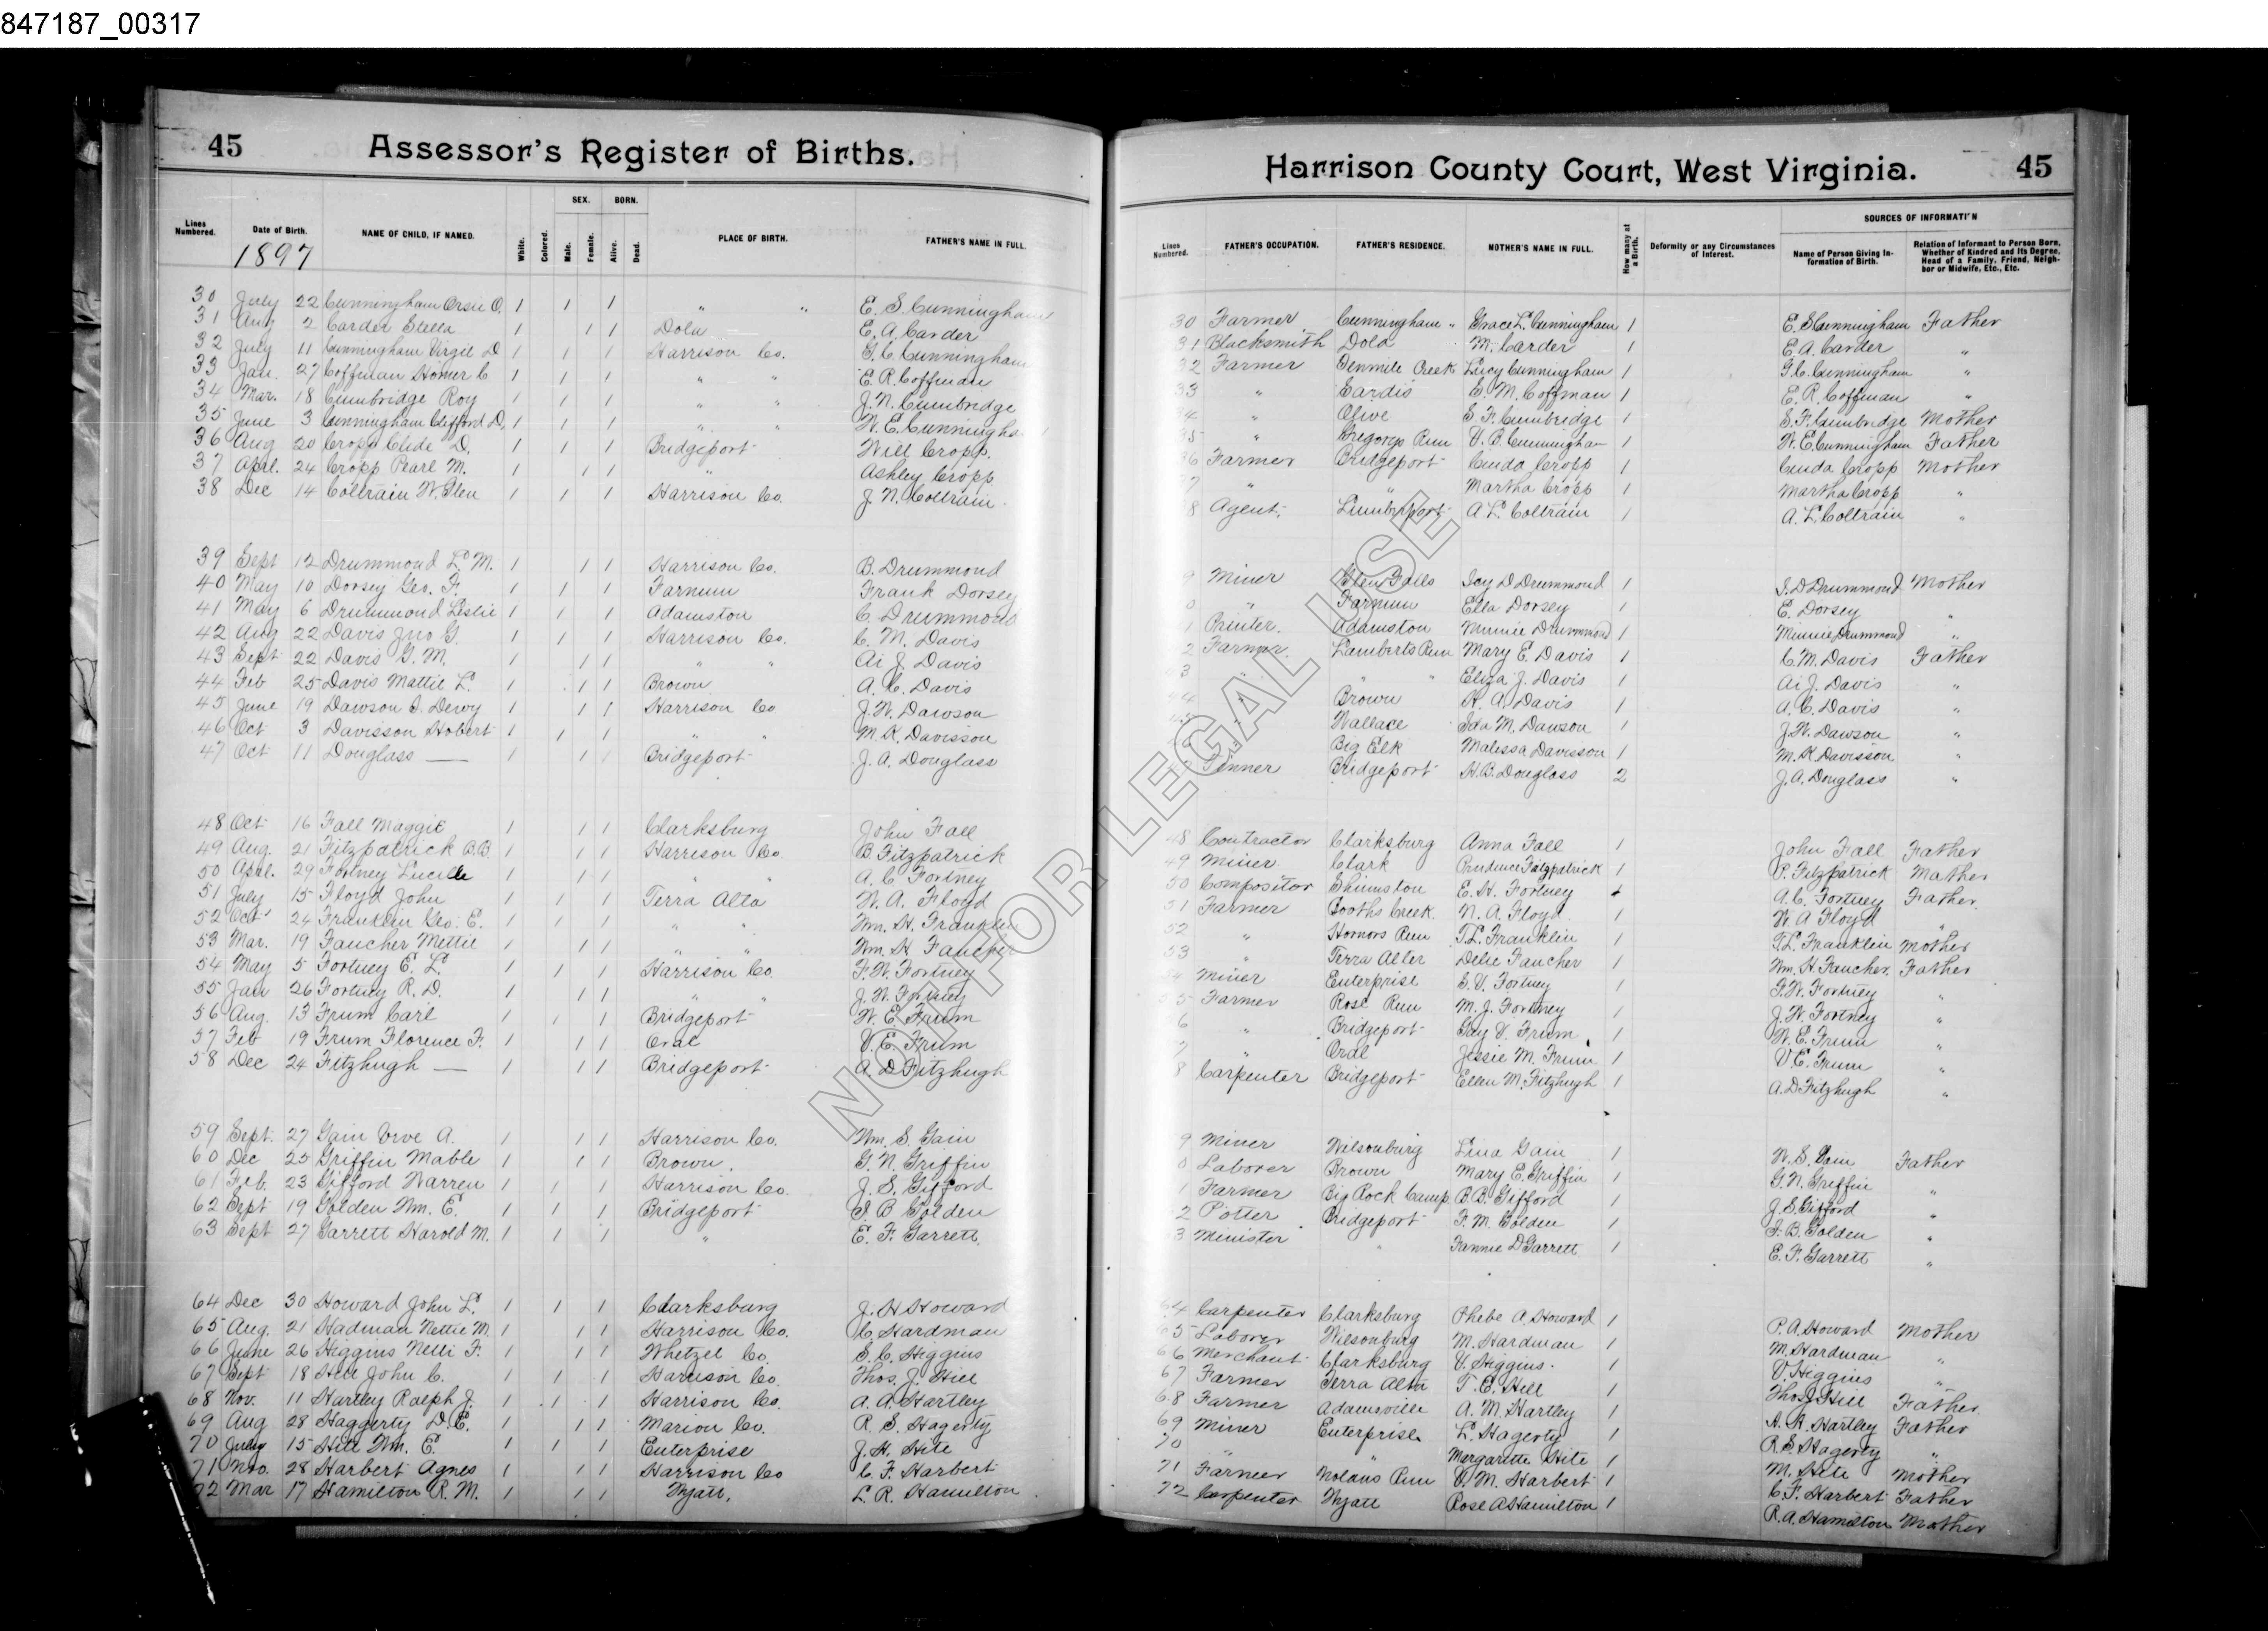 847187_00317
45 Assessor's Register of Births.
Lines Numbered. Date of Birth. NAME OF CHILD, IF NAMED. White. Colored. SEX. Male. Female. BORN. Alive. Dead. PLACE OF BIRTH. FATHER'S NAME IN FULL.
1897
30 July 22 Cunningham Orsie O. 1 1 1 " " E. S. Cunningham
31 Aug 2 Carder Stella 1 1 1 Dola E. A. Carder
32 July 11 Cunningham Virgil D 1 1 1 Harrison Co. G. C. Cunningham
33 Jan. 27 Coffman Homer C 1 1 1 " " E. R. Coffman
34 Mar. 18 Cumbridge Roy 1 1 1 " " J. N. Cumbridge
35 June 3 Cunningham Clifford D. 1 1 1 " " W. E. Cunningham
36 Aug 20 Cropp Clide D. 1 1 1 Bridgeport Will Cropp.
37 April. 24 Cropp Pearl M. 1 1 1 " Ashley Cropp
38 Dec 14 Coltrain W. Glen 1 1 1 Harrison Co. J. N. Coltrain
39 Sept 12 Drummond L. M. 1 1 1 Harrison Co. B. Drummond
40 May 10 Dorsey Geo. F. 1 1 1 Farnum Frank Dorsey
41 May 6 Drummond Leslie 1 1 1 Adamston C. Drummond
42 Aug 22 Davis Jno G. 1 1 1 Harrison Co. C. M. Davis
43 Sept 22 Davis G. M. 1 1 1 " " Ai J. Davis
44 Feb 25 Davis Mattie L. 1 1 1 Brown A. C. Davis
45 June 19 Dawson I. Dewy 1 1 1 Harrison Co J. W. Dawson
46 Oct 3 Davisson Hobert 1 1 1 " " M. K. Davisson
47 Oct 11 Douglass — 1 1 1 Bridgeport J. A. Douglass
48 Oct 16 Fall Maggie 1 1 1 Clarksburg John Fall
49 Aug. 21 Fitzpatrick B.B. 1 1 1 Harrison Co B Fitzpatrick
50 April. 29 Fortney Lucille 1 1 1 " " A. C Fortney
51 July 15 Floyd John 1 1 1 Terra Alta W. A. Floyd
52 Oct 24 Franklin Geo. E. 1 1 1 " " Wm. H. Franklin
53 Mar. 19 Faucher Mettie 1 1 1 " " Wm. H Faucher
54 May 5 Fortney E. L. 1 1 1 Harrison Co. F. W. Fortney
55 Jan 26 Fortney R. D. 1 1 1 " " J. W. Fortney
56 Aug. 13 Frum Carl 1 1 1 Bridgeport W. E Frum
57 Feb 19 Frum Florence F. 1 1 1 Oral V. E. Frum
58 Dec 24 Fitzhugh — 1 1 1 Bridgeport A. D Fitzhugh
59 Sept. 27 Gain Orve A. 1 1 1 Harrison Co. Wm. S. Gain
60 Dec 25 Griffin Mable 1 1 1 Brown. G. N. Griffin
61 Feb. 23 Gifford Warren 1 1 1 Harrison Co. J. S. Gifford
62 Sept 19 Golden Wm. E. 1 1 1 Bridgeport J. B Golden
63 Sept 27 Garrett Harold M. 1 1 1 " E. F. Garrett
64 Dec 30 Howard John L. 1 1 1 Clarksburg J. H Howard
65 Aug. 21 Hadman Nettie M. 1 1 1 Harrison Co. C Hardman
66 June 26 Higgins Nelli F. 1 1 1 Whetzel Co. S. C. Higgins
67 Sept 18 Hill John C. 1 1 1 Harrison Co. Thos. J. Hill
68 Nov. 11 Hartley Ralph J. 1 1 1 Harrison Co. A. A. Hartley
69 Aug 28 Haggerty D. E. 1 1 1 Marion Co. R. S. Hagerty
70 July 15 Hite Wm. E. 1 1 1 Enterprise J. H. Hite
71 Nov. 28 Harbert Agnes 1 1 1 Harrison Co C. F. Harbert
72 Mar 17 Hamilton R. M. 1 1 1 Wyatt. L. R. Hamilton
Harrison County Court, West Virginia. 45
Lines Numbered. FATHER'S OCCUPATION. FATHER'S RESIDENCE. MOTHER'S NAME IN FULL. How many at a Birth. Deformity or any Circumstances of Interest. SOURCES OF INFORMATI'N Name of Person Giving Information of Birth. Relation of Informant to Person Born, Whether of Kindred and Its Degree, Head of a Family, Friend, Neighbor or Midwife, Etc., Etc.
30 Farmer Cunningham " Grace L. Cunningham 1 E. S Cunningham Father
31 Blacksmith Dola M. Carder 1 E. A. Carder "
32 Farmer Tenmile Creek Lucy Cunningham 1 G. C. Cunningham "
33 " Sardis E. M. Coffman 1 E. R. Coffman "
34 " Olive S. F. Cumbridge 1 S. F. Cumbridge Mother
35 " Gregorys Run V. B. Cunningham 1 W. E Cunningham Father
36 Farmer Bridgeport Cinda Cropp 1 Cinda Cropp Mother
7 " " Martha Cropp 1 Martha Cropp "
8 Agent. Lumberport A L. Coltrain 1 A. L. Coltrain "
9 Miner Glen Falls Icy D Drummond 1 I. D Drummond Mother
0 " Farnum Ella Dorsey 1 E. Dorsey "
1 Printer. Adamston Minnie Drummond 1 Minnie Drummond "
2 Farmer Lamberts Run Mary E. Davis 1 C. M. Davis Father
43 " " " Eliza J. Davis 1 Ai J. Davis "
44 " Brown H. A. Davis 1 A. C. Davis "
45 " Wallace Ida M. Dawson 1 J. W. Dawson "
" Big Elk Malessa Davisson 1 M. K. Davisson "
Tinner Bridgeport H. B. Douglass 2 J. A. Douglass "
48 Contractor Clarksburg Anna Fall 1 John Fall Father
49 Miner Clark Prudence Fitzpatrick 1 P. Fitzpatrick Mother
50 Compositor Shinnston E. H. Fortney 1 A. C. Fortney Father
51 Farmer Booths Creek. N. A. Floyd 1 W. A Floyd "
52 " Hornors Run T. L. Franklin 1 T. L. Franklin Mother
53 " Terra Alter Delie Faucher 1 Wm. H. Faucher. Father
54 Miner Enterprise S. V. Fortney 1 F. W. Fortney "
55 Farmer Rose Run M. J. Fortney 1 J. W Fortney "
6 " Bridgeport Gay V. Frum 1 W. E. Frum "
7 " Oral Jessie M. Frum 1 V E. Frum "
8 Carpenter Bridgeport Ellen M. Fitzhugh 1 A. D Fitzhugh "
9 Miner Wilsonburg Lina Gain 1 W. S. Gain Father
0 Laborer Brown Mary E. Griffin 1 G. N. Griffin "
1 Farmer Big Rock Camp B. B. Gifford 1 J. S. Gifford "
2 Potter Bridgeport F. M. Golden 1 J. B. Golden "
3 Minister " Fannie D Garrett 1 E. F. Garrett "
64 Carpenter Clarksburg Phebe A. Howard 1 P. A. Howard Mother
65 Laborer Wilsonburg M. Hardman 1 M. Hardman "
66 Merchant Clarksburg V. Higgins. 1 V. Higgins "
67 Farmer Terra Alta T. E. Hill 1 Thos J Hill Father
68 Farmer Adamsville A. M. Hartley 1 A. A. Hartley Father
69 Miner Enterprise L. Hagerty 1 R. S. Hagerty "
70 " " Margarette Hite 1 M. Hite Mother
71 Farmer Nolans Run V. M. Harbert 1 C. F. Harbert Father
72 Carpenter Wyatt Rose A Hamilton 1 R. A. Hamilton Mother
NOT FOR LEGAL USE